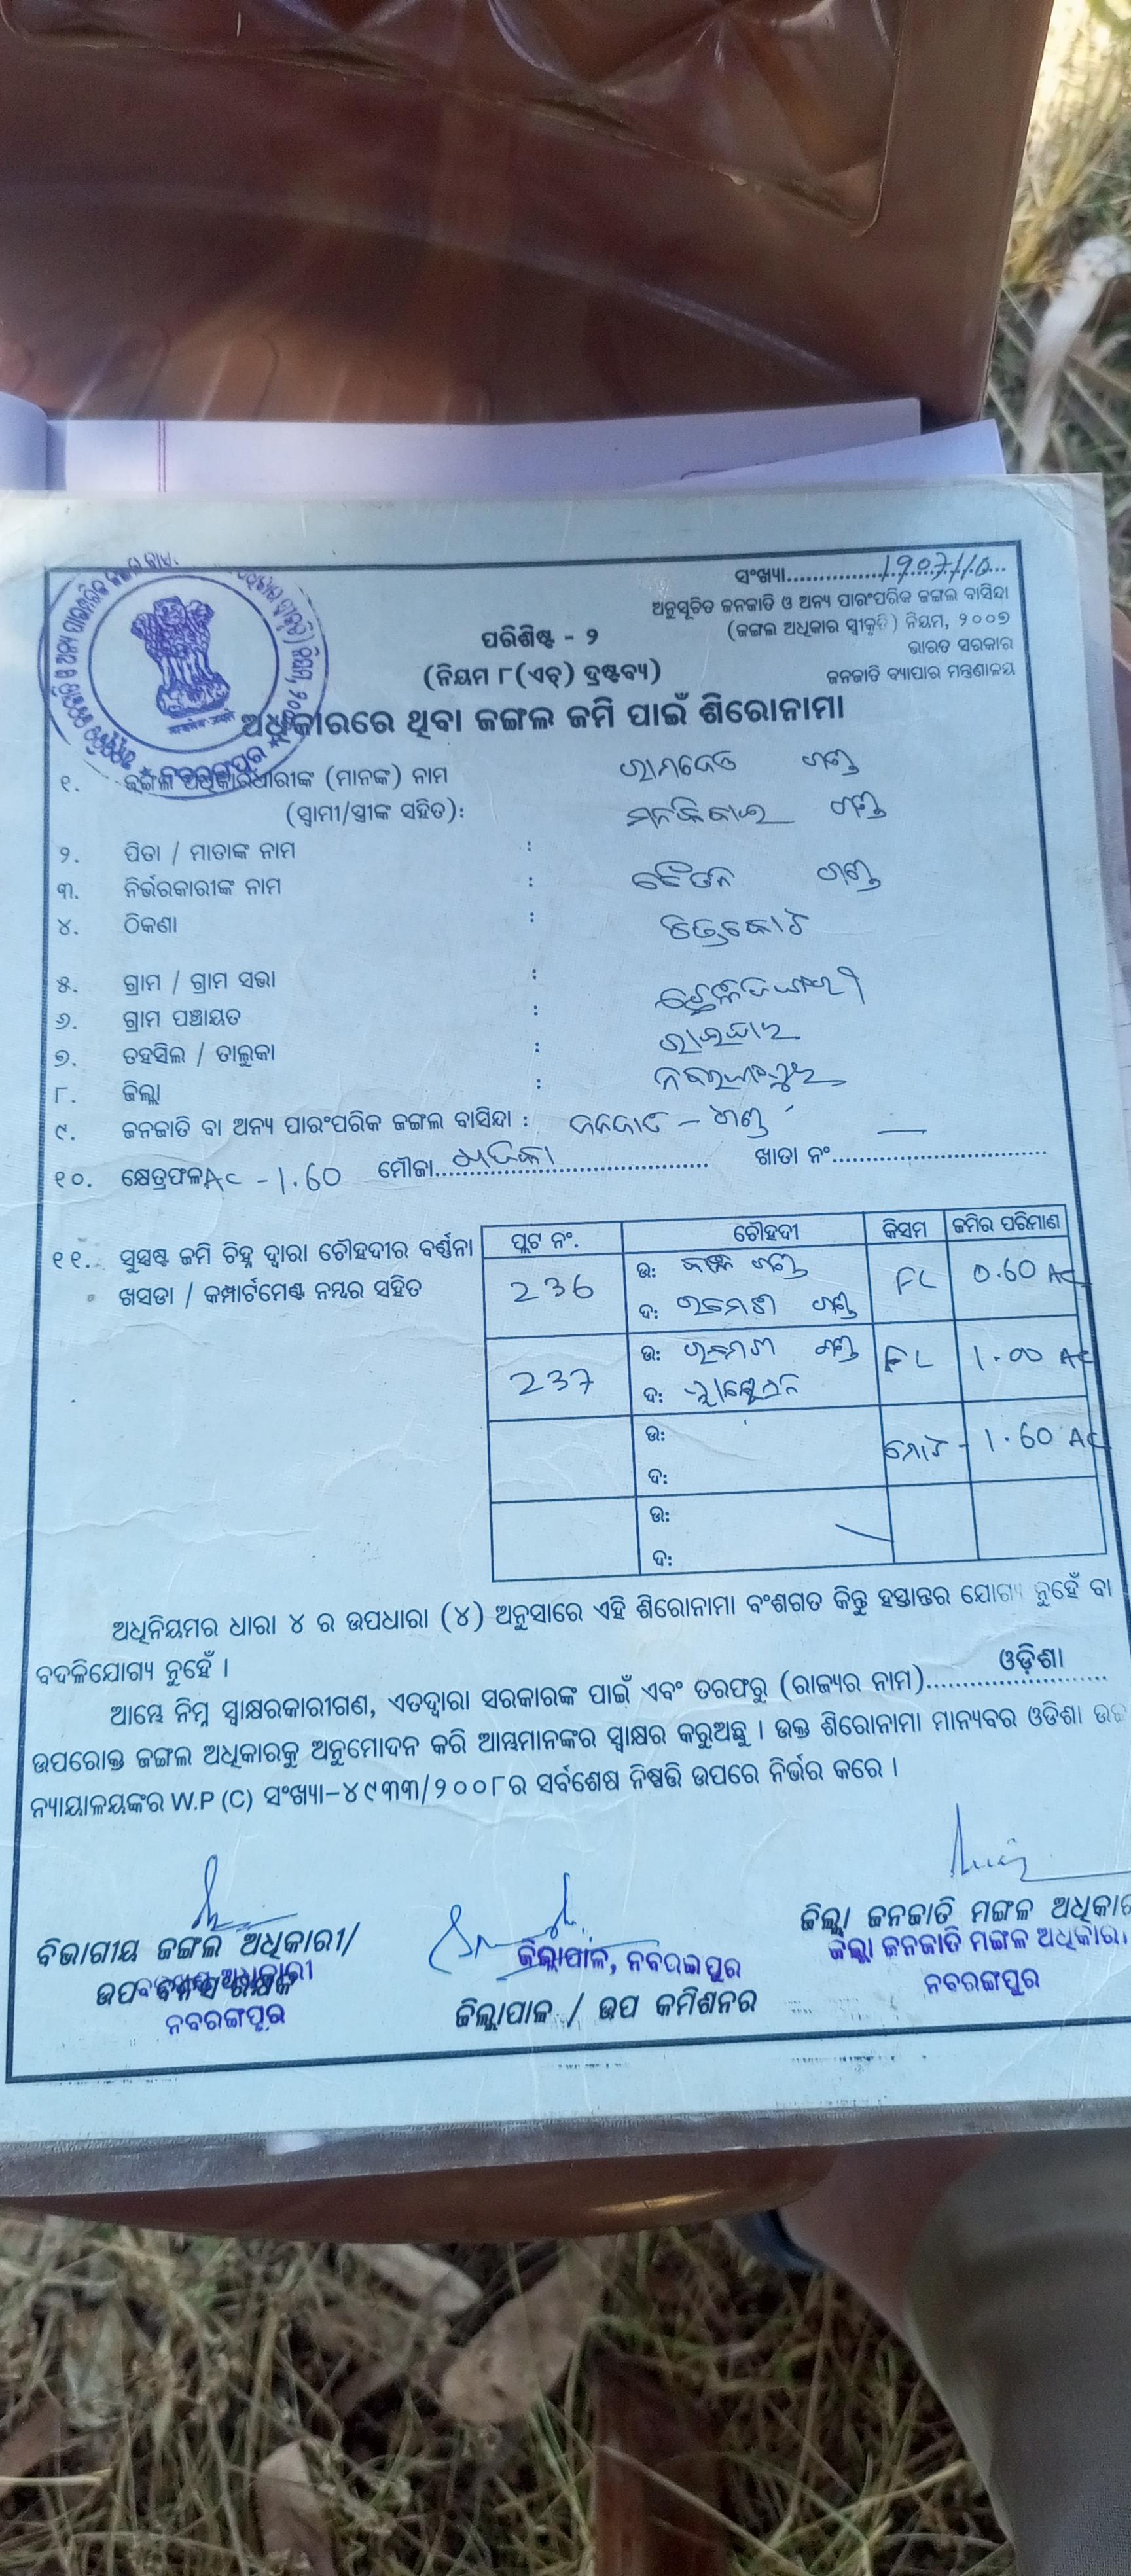 ସଂଖ୍ୟା................1907/10...
ଅନୁସୂଚିତ ଜନଜାତି ଓ ଅନ୍ୟ ପାରଂପରିକ ଜଙ୍ଗଲ ବାସିନ୍ଦା
(ଜଙ୍ଗଲ ଅଧିକାର ସ୍ୱୀକୃତି) ନିୟମ, ୨୦୦୭
ଭାରତ ସରକାର
ଜନଜାତି ବ୍ୟାପାର ମନ୍ତ୍ରଣାଳୟ
ପରିଶିଷ୍ଟ - ୨
(ନିୟମ ୮(ଏଚ୍) ଦ୍ରଷ୍ଟବ୍ୟ)
ଅଧିକାରରେ ଥିବା ଜଙ୍ଗଲ ଜମି ପାଇଁ ଶିରୋନାମା
ନବରଙ୍ଗପୁର
୧. ଜଙ୍ଗଲ ଅଧିକାରଧାରୀଙ୍କ (ମାନଙ୍କ) ନାମ ରାମଦେଓ ଗଣ୍ଡ
(ସ୍ୱାମୀ/ସ୍ତ୍ରୀଙ୍କ ସହିତ): ମାନକିବାଇ ଗଣ୍ଡ
୨. ପିତା / ମାତାଙ୍କ ନାମ :
୩. ନିର୍ଭରକାରୀଙ୍କ ନାମ : ଚୈତନ ଗଣ୍ଡ
୪. ଠିକଣା :
୫. ଗ୍ରାମ / ଗ୍ରାମ ସଭା :
୬. ଗ୍ରାମ ପଞ୍ଚାୟତ :
୭. ତହସିଲ / ତାଲୁକା : ରାଇଘର
୮. ଜିଲ୍ଲା : ନବରଙ୍ଗପୁର
୯. ଜନଜାତି ବା ଅନ୍ୟ ପାରଂପରିକ ଜଙ୍ଗଲ ବାସିନ୍ଦା : ଜନଜାତି - ଗଣ୍ଡ
୧୦. କ୍ଷେତ୍ରଫଳ AC - 1.60 ମୌଜା.................................... ଖାତା ନଂ............................
୧୧. ସୁସ୍ପଷ୍ଟ ଜମି ଚିହ୍ନ ଦ୍ୱାରା ଚୌହଦୀର ବର୍ଣ୍ଣନା
ଖସଡା / କମ୍ପାର୍ଟମେଣ୍ଟ ନମ୍ବର ସହିତ
ପ୍ଲଟ ନଂ. ଚୌହଦୀ କିସମ ଜମିର ପରିମାଣ
236 ଉ: ଗଣ୍ଡ FL 0.60 AC
ଦ: ଗଣ୍ଡ
237 ଉ: ଗଣ୍ଡ FL 1.00 AC
ଦ:
ଉ: ମୋଟ - 1.60 AC
ଦ:
ଉ:
ଦ:
ଅଧିନିୟମର ଧାରା ୪ ର ଉପଧାରା (୪) ଅନୁସାରେ ଏହି ଶିରୋନାମା ବଂଶଗତ କିନ୍ତୁ ହସ୍ତାନ୍ତର ଯୋଗ୍ୟ ନୁହେଁ ବା
ବଦଳିଯୋଗ୍ୟ ନୁହେଁ ।
ଆମ୍ଭେ ନିମ୍ନ ସ୍ୱାକ୍ଷରକାରୀଗଣ, ଏତଦ୍ୱାରା ସରକାରଙ୍କ ପାଇଁ ଏବଂ ତରଫରୁ (ରାଜ୍ୟର ନାମ)....ଓଡ଼ିଶା....
ଉପରୋକ୍ତ ଜଙ୍ଗଲ ଅଧିକାରକୁ ଅନୁମୋଦନ କରି ଆମ୍ଭମାନଙ୍କର ସ୍ୱାକ୍ଷର କରୁଅଛୁ । ଉକ୍ତ ଶିରୋନାମା ମାନ୍ୟବର ଓଡିଶା ଉଚ୍ଚ
ନ୍ୟାୟାଳୟଙ୍କର W.P (C) ସଂଖ୍ୟା-୪୯୩୩/୨୦୦୮ର ସର୍ବଶେଷ ନିଷ୍ପତ୍ତି ଉପରେ ନିର୍ଭର କରେ ।
ବିଭାଗୀୟ ଜଙ୍ଗଲ ଅଧିକାରୀ/
ଉପ ବନସଂରକ୍ଷକ
ନବରଙ୍ଗପୁର
ଜିଲ୍ଲାପାଳ, ନବରଙ୍ଗପୁର
ଜିଲ୍ଲାପାଳ / ଉପ କମିଶନର
ଜିଲ୍ଲା ଜନଜାତି ମଙ୍ଗଳ ଅଧିକାରୀ
ଜିଲ୍ଲା ଜନଜାତି ମଙ୍ଗଳ ଅଧିକାରୀ
ନବରଙ୍ଗପୁର